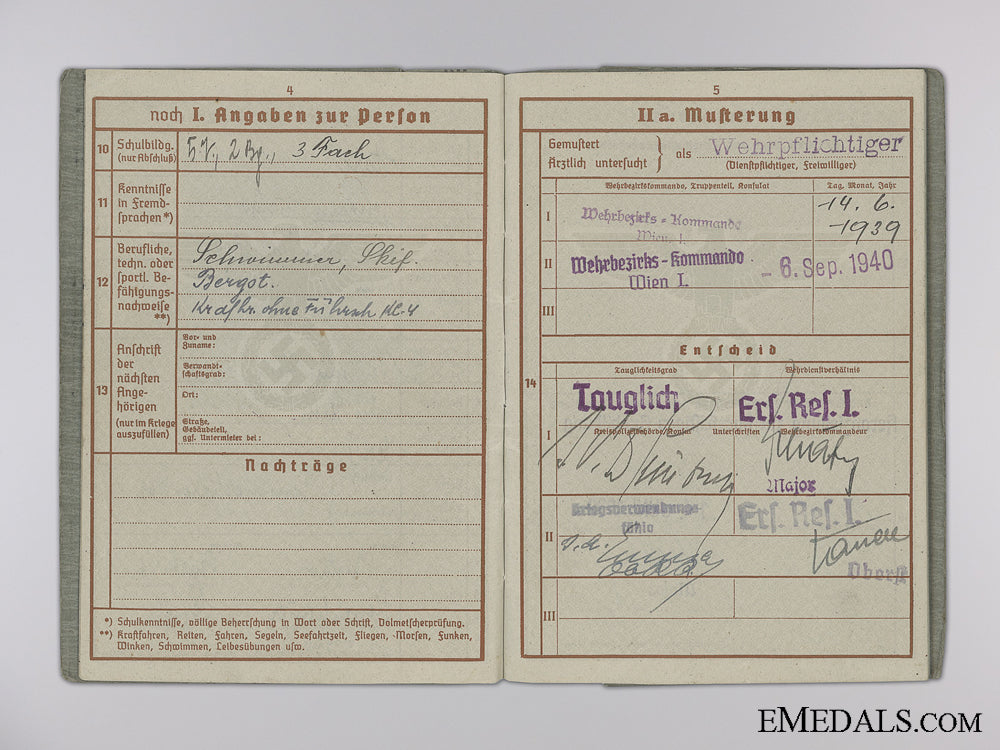 4
noch I. Angaben zur Person
10 Schulbildg.
(nur Abschluß)
5 V., 2 Bg., 3 Fach
11 Kenntnisse
in Fremd-
sprachen *)
12 Berufliche,
techn. oder
sportl. Be-
fähigungs-
nachweise
**)
Schwimmer, Skif.
Bergst.
Kradfhr. ohne Führsch. Kl. 4
13 Anschrift
der
nächsten
Ange-
hörigen
(nur im Kriege
auszufüllen)
Vor- und
Zuname:
Verwandt-
schaftsgrad:
Ort:
Straße,
Gebäudeteil,
ggf. Untermieter bei:
Nachträge
*) Schulkenntnisse, völlige Beherrschung in Wort oder Schrift, Dolmetscherprüfung.
**) Kraftfahren, Reiten, Fahren, Segeln, Seefahrtzeit, Fliegen, Morsen, Funken,
Winken, Schwimmen, Leibesübungen usw.
5
II a. Musterung
Gemustert
Ärztlich untersucht } als Wehrpflichtiger
(Dienstpflichtiger, Freiwilliger)
Wehrbezirkskommando, Truppenteil, Konsulat
Tag, Monat, Jahr
I Wehrbezirks-Kommando
Wien I.
14. 6.
1939
II Wehrbezirks-Kommando
Wien I
- 6. Sep. 1940
III
Entscheid
14
Tauglichkeitsgrad
Wehrdienstverhältnis
Tauglich
Ers. Res. I.
I
Kreispolizeibehörde/Konsul Unterschriften Wehrbezirkskommandeur
Major
II
Kriegsverwendungs-
fähig
Ers. Res. I.
Oberst
III
EMEDALS.COM